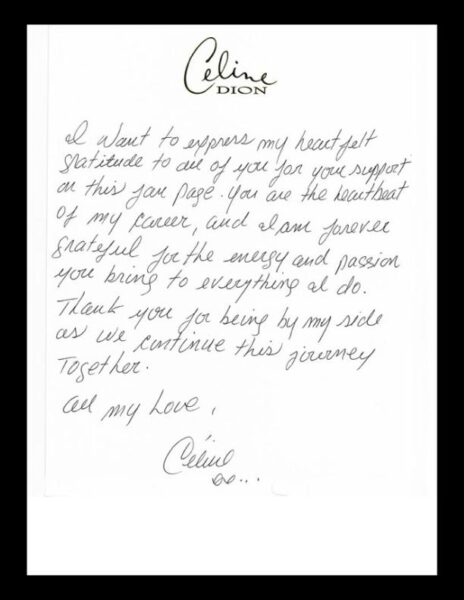 Celine
DION
I want to express my heartfelt
gratitude to all of you for your support
on this fan page. You are the heartbeat
of my career, and I am forever
grateful for the energy and passion
you bring to everything I do.
Thank you for being by my side
as we continue this journey
Together.
All my Love,
Céline
xx...